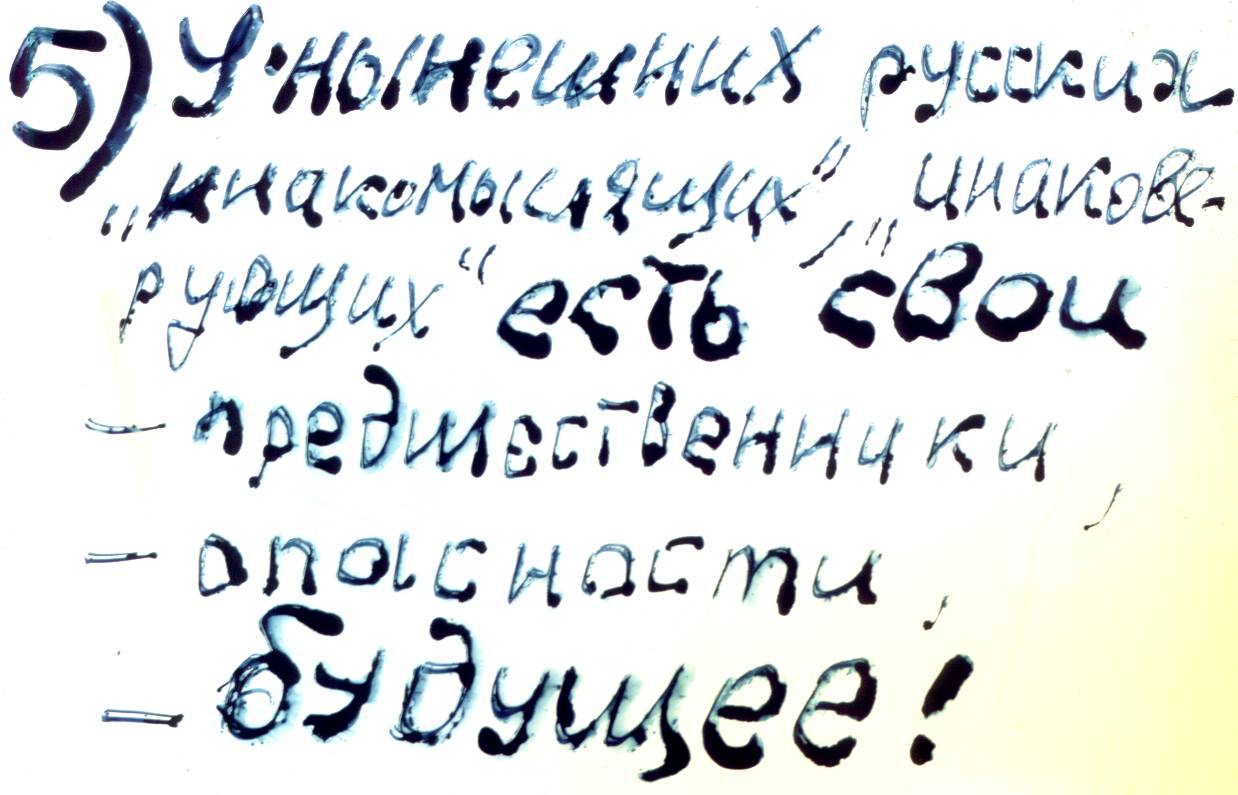 5) У нынешних русских
„инакомыслящих", „инакове-
рующих" есть свои
— предшественники,
— опасности,
— будущее!